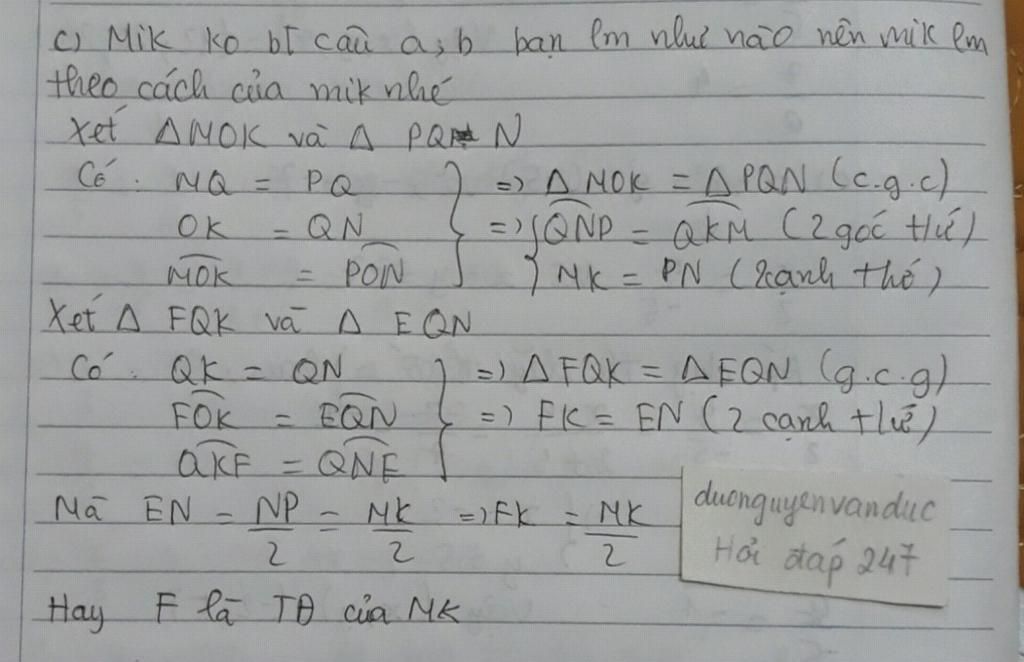 c) Mik ko bt câu a, b bạn lm như nào nên mik lm
theo cách của mik nhé
Xét Δ MOK và Δ PQN
Có: MQ = PQ } => Δ MOK = Δ PQN (c.g.c)
OK = QN => { QNP = QKM (2 góc tứ)
MOK = PON } MK = PN (2 cạnh thớ)
Xét Δ FQK và Δ EQN
Có: QK = QN } => Δ FQK = Δ EQN (g.c.g)
FOK = EQN => FK = EN (2 cạnh tứ)
QKF = QNE
Mà EN = NP/2 = MK/2 => FK = MK/2
Hay F là TĐ của MK
duonguyenvanduc
Hỏi đáp 247